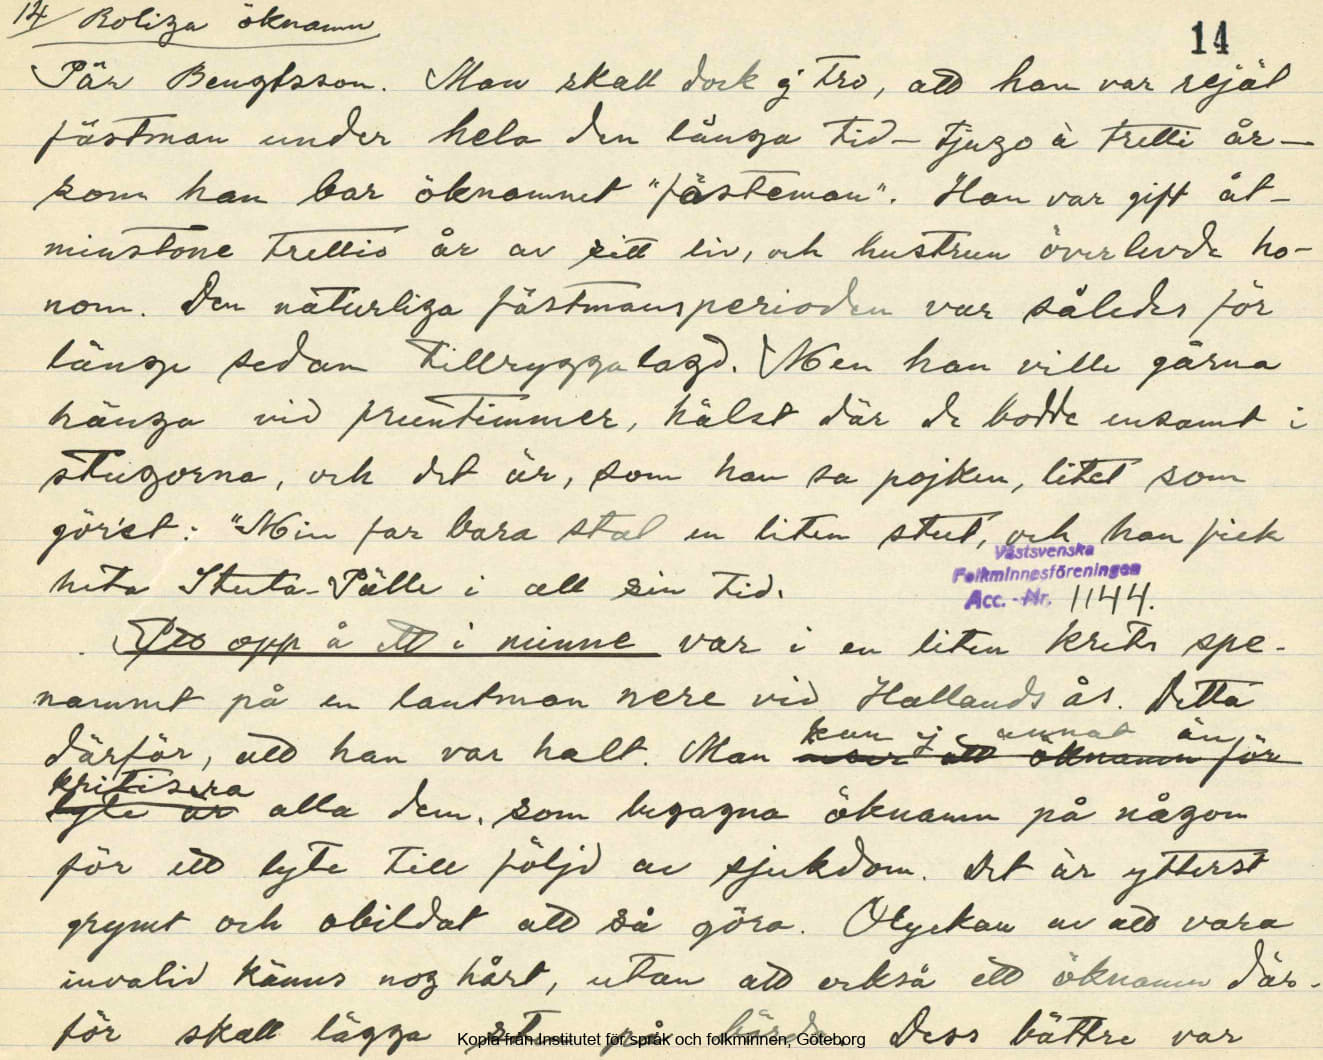 14 Roliga öknamn
14
Pär Bengtsson. Man skall dock ej tro, att han var rejäl
fästman under hela den långa tid – tjugo à tretti år –
som han bar öknamnet "fästeman". Han var gift åt-
minstone trettio år av sitt liv, och hustrun överlevde ho-
nom. Den naturliga fästmansperioden var således för
länge sedan tillryggalagd. Men han ville gärna
hänga vid fruntimmer, hälst där de bodde ensamt i
stugorna, och det är, som han sa pojken, litet som
gör'et: "Min far bara stal en liten stut, och han fick
heta Stuta-Pälle i all sin tid.
Västsvenska
Folkminnesföreningen
Acc. - Nr. 1144.
opp å ett i minne var i en liten krets spe-
namnet på en lantman nere vid Hallands ås. Detta
därför, att han var halt. Man kan ej annat än
att öknamn för
kritisera
lyte är alla dem, som begagna öknamn på någon
för ett lyte till följd av sjukdom. Det är ytterst
grymt och obildat att så göra. Olyckan av att vara
invalid känns nog hårt, utan att också ett öknamn där-
för skall lägga sten på börda. Dess bättre var
Kopia från Institutet för språk och folkminnen, Göteborg